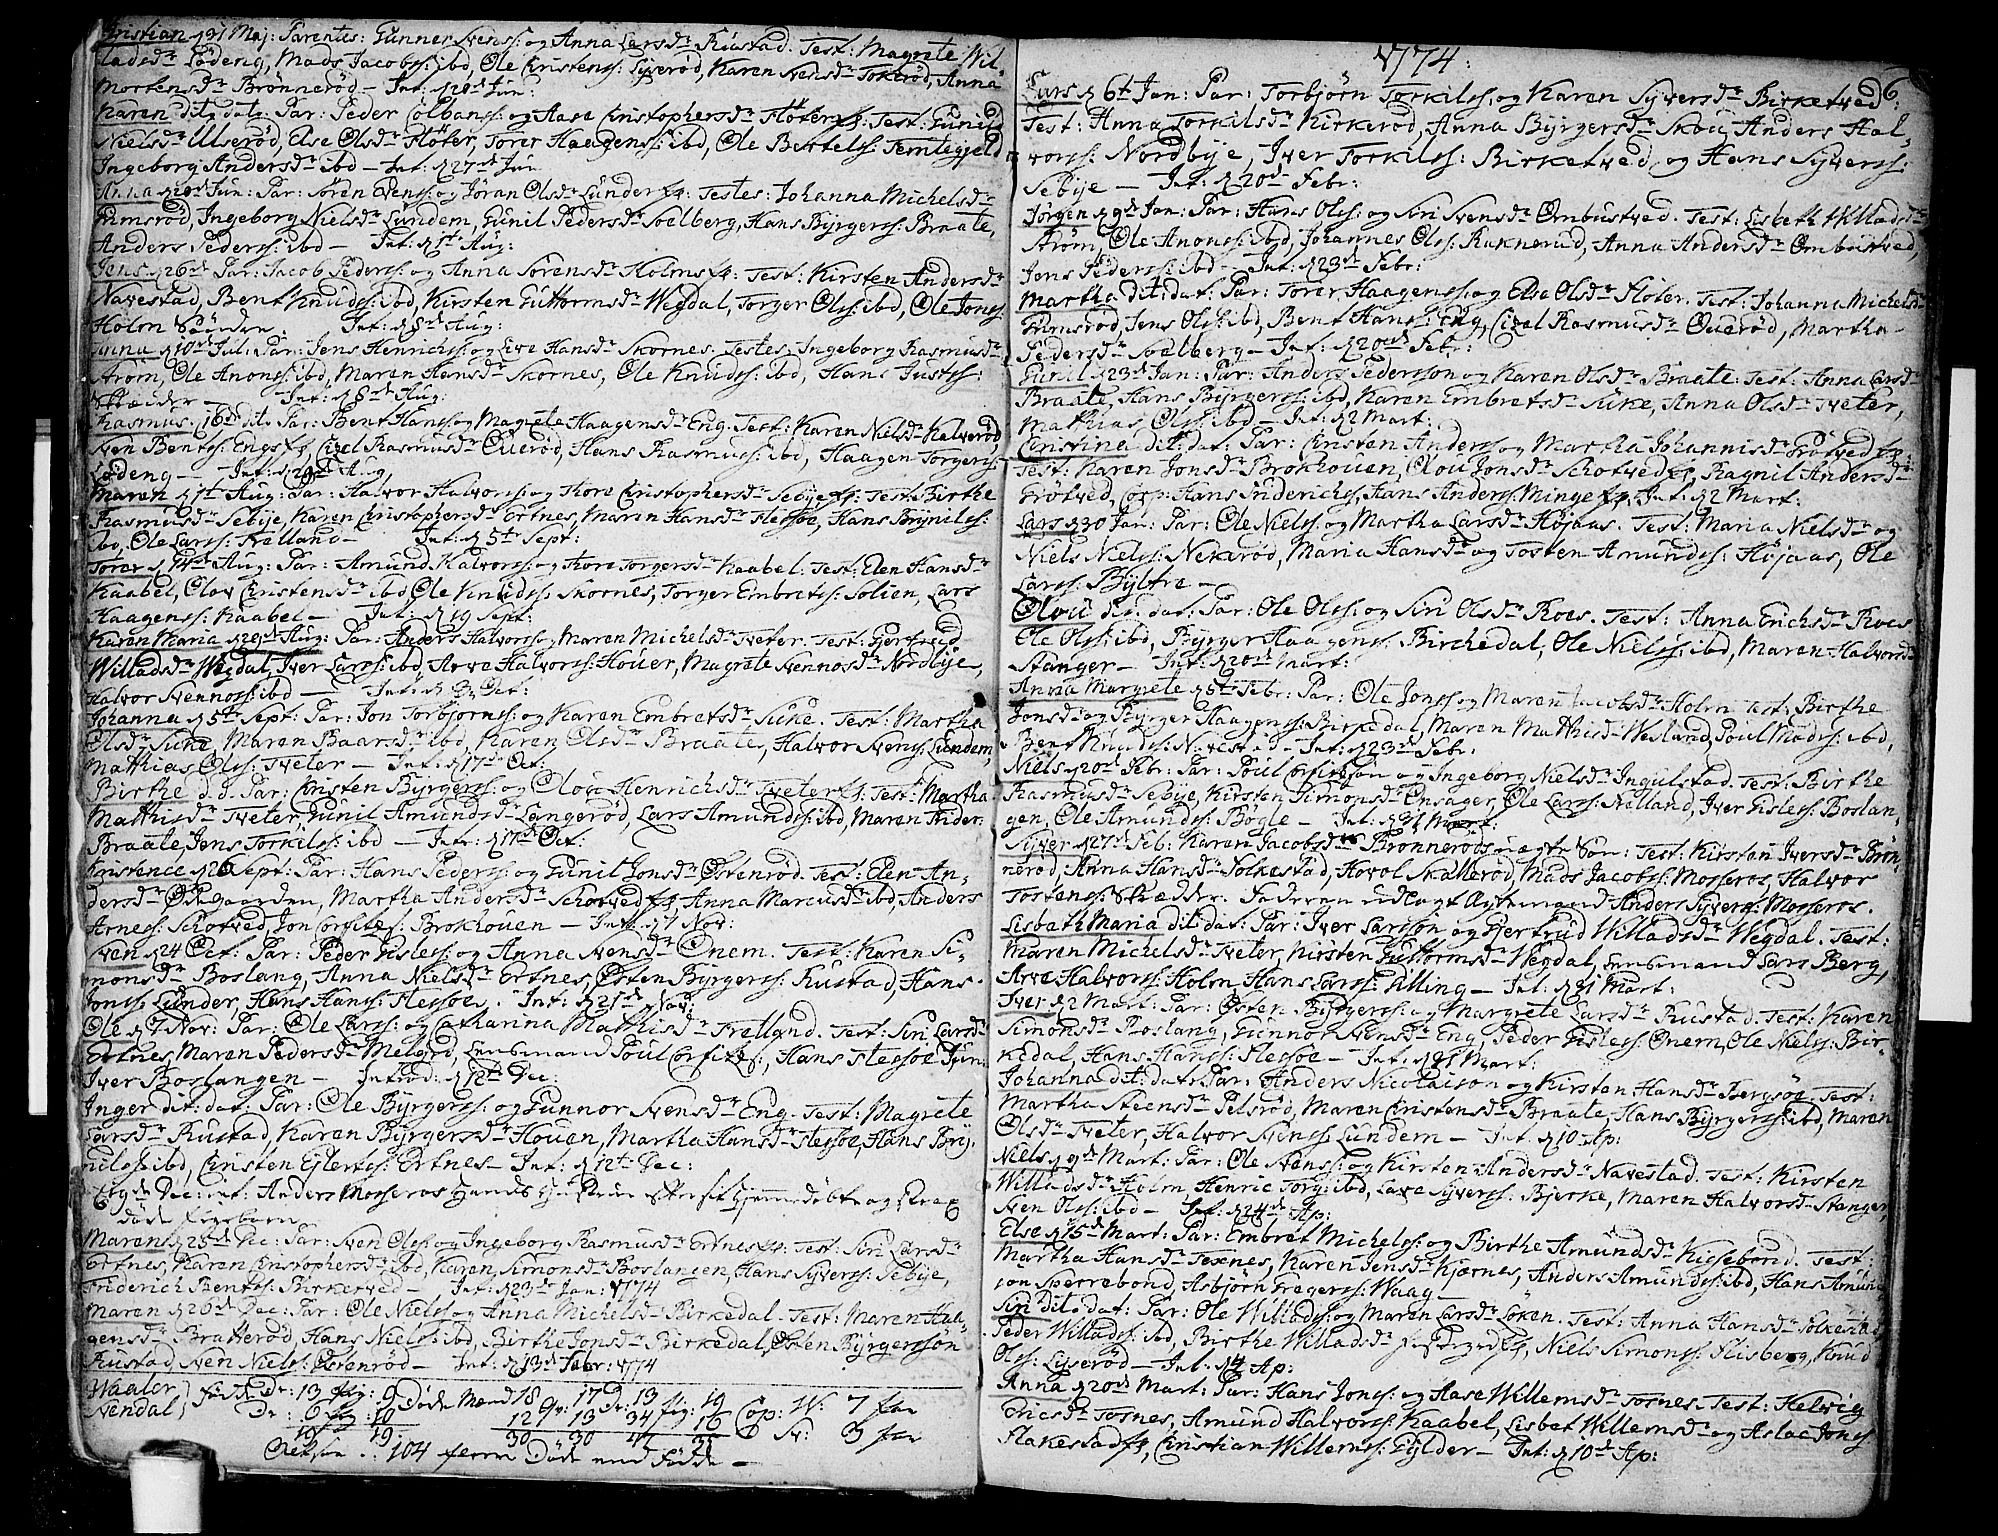 Kristian d 31 Maj: Parentes: Gunner Svens: og Anna Larsdr Rustad. Test: Magrete Wil-
ladsdr Lødeng, Mads Jacobs: ibd, Ole Cristens: Lyserød, Karen Svensdr Tokerød, Anna
Mortensdr Brønnerød – Int: d 20d Jun:
Karen dit: dat: Par: Peder Colbans: og Aase Cristophersdr Fløter Test: Gunild
Nielsdr Ulserød, Else Olsdr Fløter, Torer Haagens: ibd, Ole Bertels: Temtegjeld
Ingeborg Andersdr ibd – Int: d 27d Jun
Anna d 20d Jun: Par: Søren Svens: og Jøran Olsdr Lunder Testes: Johanna Michelsdr
Grimsrød, Ingeborg Nielsdr Lundem, Gunil Pedersdr Soelberg, Hans Byrgers: Braate,
Anders Peders: ibd – Int: d 1t Aug:
Jens d 26d Par: Jacob Peders: og Anna Sørensdr Holms Test: Kirsten Andersdr
Navestad, Bent Knuds: ibd, Kirsten Guttormsdr Wegdal, Torger Ols: ibd, Ole Jons:
Holm Søndre. Int: d 8d Aug:
Anna d 10d Jul: Par: Jens Henrichs: og Live Hansdr Skornes. Testes: Ingeborg Rasmusdr
Strøm, Ole Anons: ibd, Maren Hansdr Skornes, Ole Knuds: ibd, Hans Justs:
Skrædder – Int: d 8d Aug:
Rasmus. 16d dit: Par: Bent Hans: og Magrete Haagensdr Eng. Test: Karen Nielsdr Kalverød,
Sven Bents: Engs, Cizel Rasmusdr Querød, Hans Rasmus: ibd, Haagen Torgers:
Lødeng – Int: d 29d Aug
Maren d 1t Aug: Par: Halvor Halvors: og Thore Cristophersdr Sebye Test: Birthe
Rasmusdr Sebye, Karen Cristophersdr Ertnes, Maren Hansdr Flessøe, Hans Brynils:
ibd, Ole Lars: Frelland – Int: d 5t Sept:
Torer d 14d Aug: Par: Amund Halvors: og Thore Torgersdr Kaabel. Test: Elen Hansdr
Kaabel, Olov Cristensdr ibd Ole Knuds: Skornes, Torger Embrets: Solien, Lars
Haagens: Kaabel – Int: d 19 Sept:
Karen Maria d 29d Aug: Par: Anders Halvors: og Maren Michelsdr Tveter. Test: Gjertrud
Willadsdr Wegdal, Iver Lars: ibd, Arve Halvors: Houer, Magrete Svennosdr Nordbye,
Halvor Svennos: ibd – Int: d 3 Oct:
Johanna d 5t Sept: Par: Jon Torbjorns: og Karen Embretsdr Suke. Test: Martha
Olsdr Suke, Maren Baarsdr ibd, Karen Olsdr Braate, Halvor Svens: Lundem,
Mathias Ols: Tveter – Int: d 17d Oct:
Birthe d. d Par: Cristen Byrgers: og Olou Henrichsdr Tveter Test: Martha
Mathisdr Tveter, Gunil Amundsdr Langerød, Lars Amunds: ibd, Maren Ander:
Braate, Jens Torkils: ibd – Int: d 17d Oct:
Cristence d 26 Sept: Par: Hans Peders: og Gunil Jonsdr Østenrød. Test: Elen An-
dersdr Ødegaarden, Martha Andersdr Schotved Anna Marcusdr ibd, Anders
Arnes: Schotved, Jon Corfits: Brokhouen – Int: d 7 Nov:
Sven d 24 Oct: Par: Peder Gisles: og Anna Svensdr Onem. Test: Karen Si-
monsdr Boslang, Anna Nielsdr Ertnes, Østen Byrgers: Rustad, Hans
Jons: Lunder, Hans Hans: Flessøe. Int: d 21d Nov:
Ole d 7 Nov: Par: Ole Lars: og Catharina Mathisdr Frelland. Test: Siri Larsdr
Ertnes, Maren Pedersdr Melgrd, Lensmand Poul Corfits:, Hans Flessøe Jun:
Iver Boslangen – Introd: d 12t Dec:
Inger dit: dat: Par: Ole Byrgers: og Gunnor Svensdr Eng. Test: Magrete
Larsdr Rustad, Karen Byrgersdr Houen, Martha Hansdr Flessøe, Hans Bry-
nils: ibd, Cristen Ejlerts: Ertnes – Int: d 12t Dec:
Dec: int: Anders Mosseros Hands Hustrue efter sit hjemmedøbte og strax
døde Pigebarn
Maren d 25d Dec: Par: Sven Ols: og Ingeborg Rasmusdr Ertnes Test: Siri Larsdr
Ertnes, Karen Cristophersdr ibd, Karen Simonsdr Boslangen, Hans Syvers: Sebye,
Friderich Bents: Birketved – Int: d 23d Jan: 1774
Maren d 26d Dec: Par: Ole Niels: og Anna Michelsdr Birkedal. Test: Maren Haa-
gensdr Bratterød, Hans Niels: ibd, Birthe Jonsdr Birkedal, Østen Byrgersøn
Rustad, Sven Niels: Østenrød – Int: d 13d Febr: 1774
Waaler, fødde Dr: 13 pig: 9 Døde Mænd 18 Qv: 17 Dr 13 pig: 19 Cop: W: 7 par
Svendal, Dr: 6 pig: 10 12 13 34 16 S: 3 par
19 19. 30 30 47 35
104 fleere Døde end Fødde –
1774.
6
Lars d 6t Jan: Par: Torbjørn Torkils: og Karen Syversdr Birketved
Test: Anna Torkilsdr Kirkerød, Anna Byrgersdr Skou, Anders Hal-
vors: Nordbye, Iver Torkils: Birketved og Hans Syvers:
Sebye – Int: d 20d Febr:
Jørgen d 9d Jan: Par: Hans Ols: og Siri Svensdr Ombustved. Test: Lisbeth Willadsdr
Strøm, Ole Anons: ibd, Johannes Ols: Ruknerud, Anna Andersdr Ombustved,
Jens Peders: ibd – Int: d 23d Febr:
Martha dit: dat: Par: Torer Haagens: og Else Olsdr Fløter. Test: Johanna Michelsdr
Grimsrød, Jens Ols: ibd, Bent Hans: Eng, Cizel Rasmusdr Querød, Martha
Pedersdr Soelberg – Int: d 20d Febr:
Gunil d 23d Jan: Par: Anders Pedersson og Karen Olsdr Braate: Test: Anna Larsdr
Braate, Hans Byrgers: ibd, Karen Embretsdr Suke, Anna Olsdr Tveter,
Mathias Ols: ibd – Int: d 2 Mart:
Cristina dit: dat: Par: Cristen Anders: og Martha Johannisdr Grøtved
Test: Karen Jonsdr Brokhouen, Olou Jonsdr Schotved, Ragnil Andersdr
Grøtved, Corp: Hans Friderichs:, Hans Anders: Minge, Int: d 2 Mart:
Lars d 30 Jan: Par: Ole Niels: og Martha Larsdr Højaas. Test: Maria Nielsdr og
Niels Niels: Nekerød, Maria Hansdr og Tosten Amunds: Højaas, Ole
Lars: Byltre –
Olou dit: dat: Par: Ole Ols: og Siri Olsdr Roes. Test: Anna Erichsdr Roes
Ole Ols: ibd, Byrger Haagens: Birchedal, Ole Niels: ibd, Maren Halvorsdr
Stanger – Int: d 20d Mart:
Anna Margrete d 5t Febr: Par: Ole Jons: og Maren Jacobsdr Holm Test: Birthe
Jonsdr og Byrger Haagens: Birkedal, Maren Mathisdr Wesland, Poul Mads: ibd,
Bent Knuds: Navestad – Int: d 23d Febr:
Niels d 20d Febr: Par: Poul Corfitzson og Ingeborg Nielsdr Ingulstad. Test: Birthe
Rasmusdr Sebye, Kirsten Simonsdr Onsager, Ole Lars: Frelland, Iver Gisles: Boslan-
gen, Ole Amunds: Bøgle – Int: d 31 Mart:
Syver d 27d Feb: Karen Jacobsdr Brønnerøds uægte Søn: Test: Kirsten Iversdr Brøn-
nerød, Anna Hansdr Folkestad, Hovol Skallerød, Mads Jacobs: Mosseros, Halvor
Tostens: Skrædder. Faderen udlagt Ægtemand Anders Syvers: Mosseros.
Lisbeth Maria dit: dat: Par: Iver Larsson og Gjertrud Willadsdr Wegdal. Test:
Maren Michelsdr Tveter, Kirsten Guttormsdr Wegdal, Lensmand Lars Berg,
Arve Halvors: Holm, Hans Lars: Filling – Int: d 31 Mart:
Iver d 2 Mart: Par: Østen Byrgers: og Margrete Larsdr Rustad. Test: Karen
Simonsdr Boslang, Gunnor Svensdr Eng, Peder Gisles: Onem, Ole Niels: Bir-
kedal, Hans Hans: Flessøe – Int: d 31 Mart:
Johanna dit: dat: Par: Anders Nicolaison og Kirsten Hansdr Bergsøe. Test:
Martha Steensdr Pelsrød, Maren Cristensdr Braate, Hans Byrgers: ibd, Maren
Olsdr Tveter, Halvor Svens: Lundem – Int: d 10 Ap:
Niels d 9d Mart: Par: Ole Svens: og Kirsten Andersdr Navestad. Test: Kirsten
Willadsdr Holm, Henric Torg: ibd, Lave Syvers: Bjerke, Maren Halvorsdr Stanger,
Sven Ols: ibd – Int: d 24d Ap:
Else d 15d Mart: Par: Embret Michels: og Birthe Amundsdr Kissebond. Test:
Martha Hansdr Texnes, Karen Jensdr Kjærnes, Anders Amunds: ibd, Hans Amund-
son Sperrebond, Asbjørn Gregers: Waag –
Siri dit: dat: Par: Ole Willads: og Maren Larsdr Løken. Test: Anna Hansdr Folkestad
Peder Willads: ibd, Birthe Willadsdr, Niels Simons: Flisberg, Knud
Ols: Lyserød – Int: d 4 Ap:
Anna d 20d Mart: Par: Hans Jons: og Aase Willemsdr Tornes. Test: Helvig
Ericsdr Tornes, Amund Halvors: Kaabel, Lisbet Willemsdr og Aslac Jons:
Flakestad, Cristian Willems: Gylder – Int: d 10d Ap: